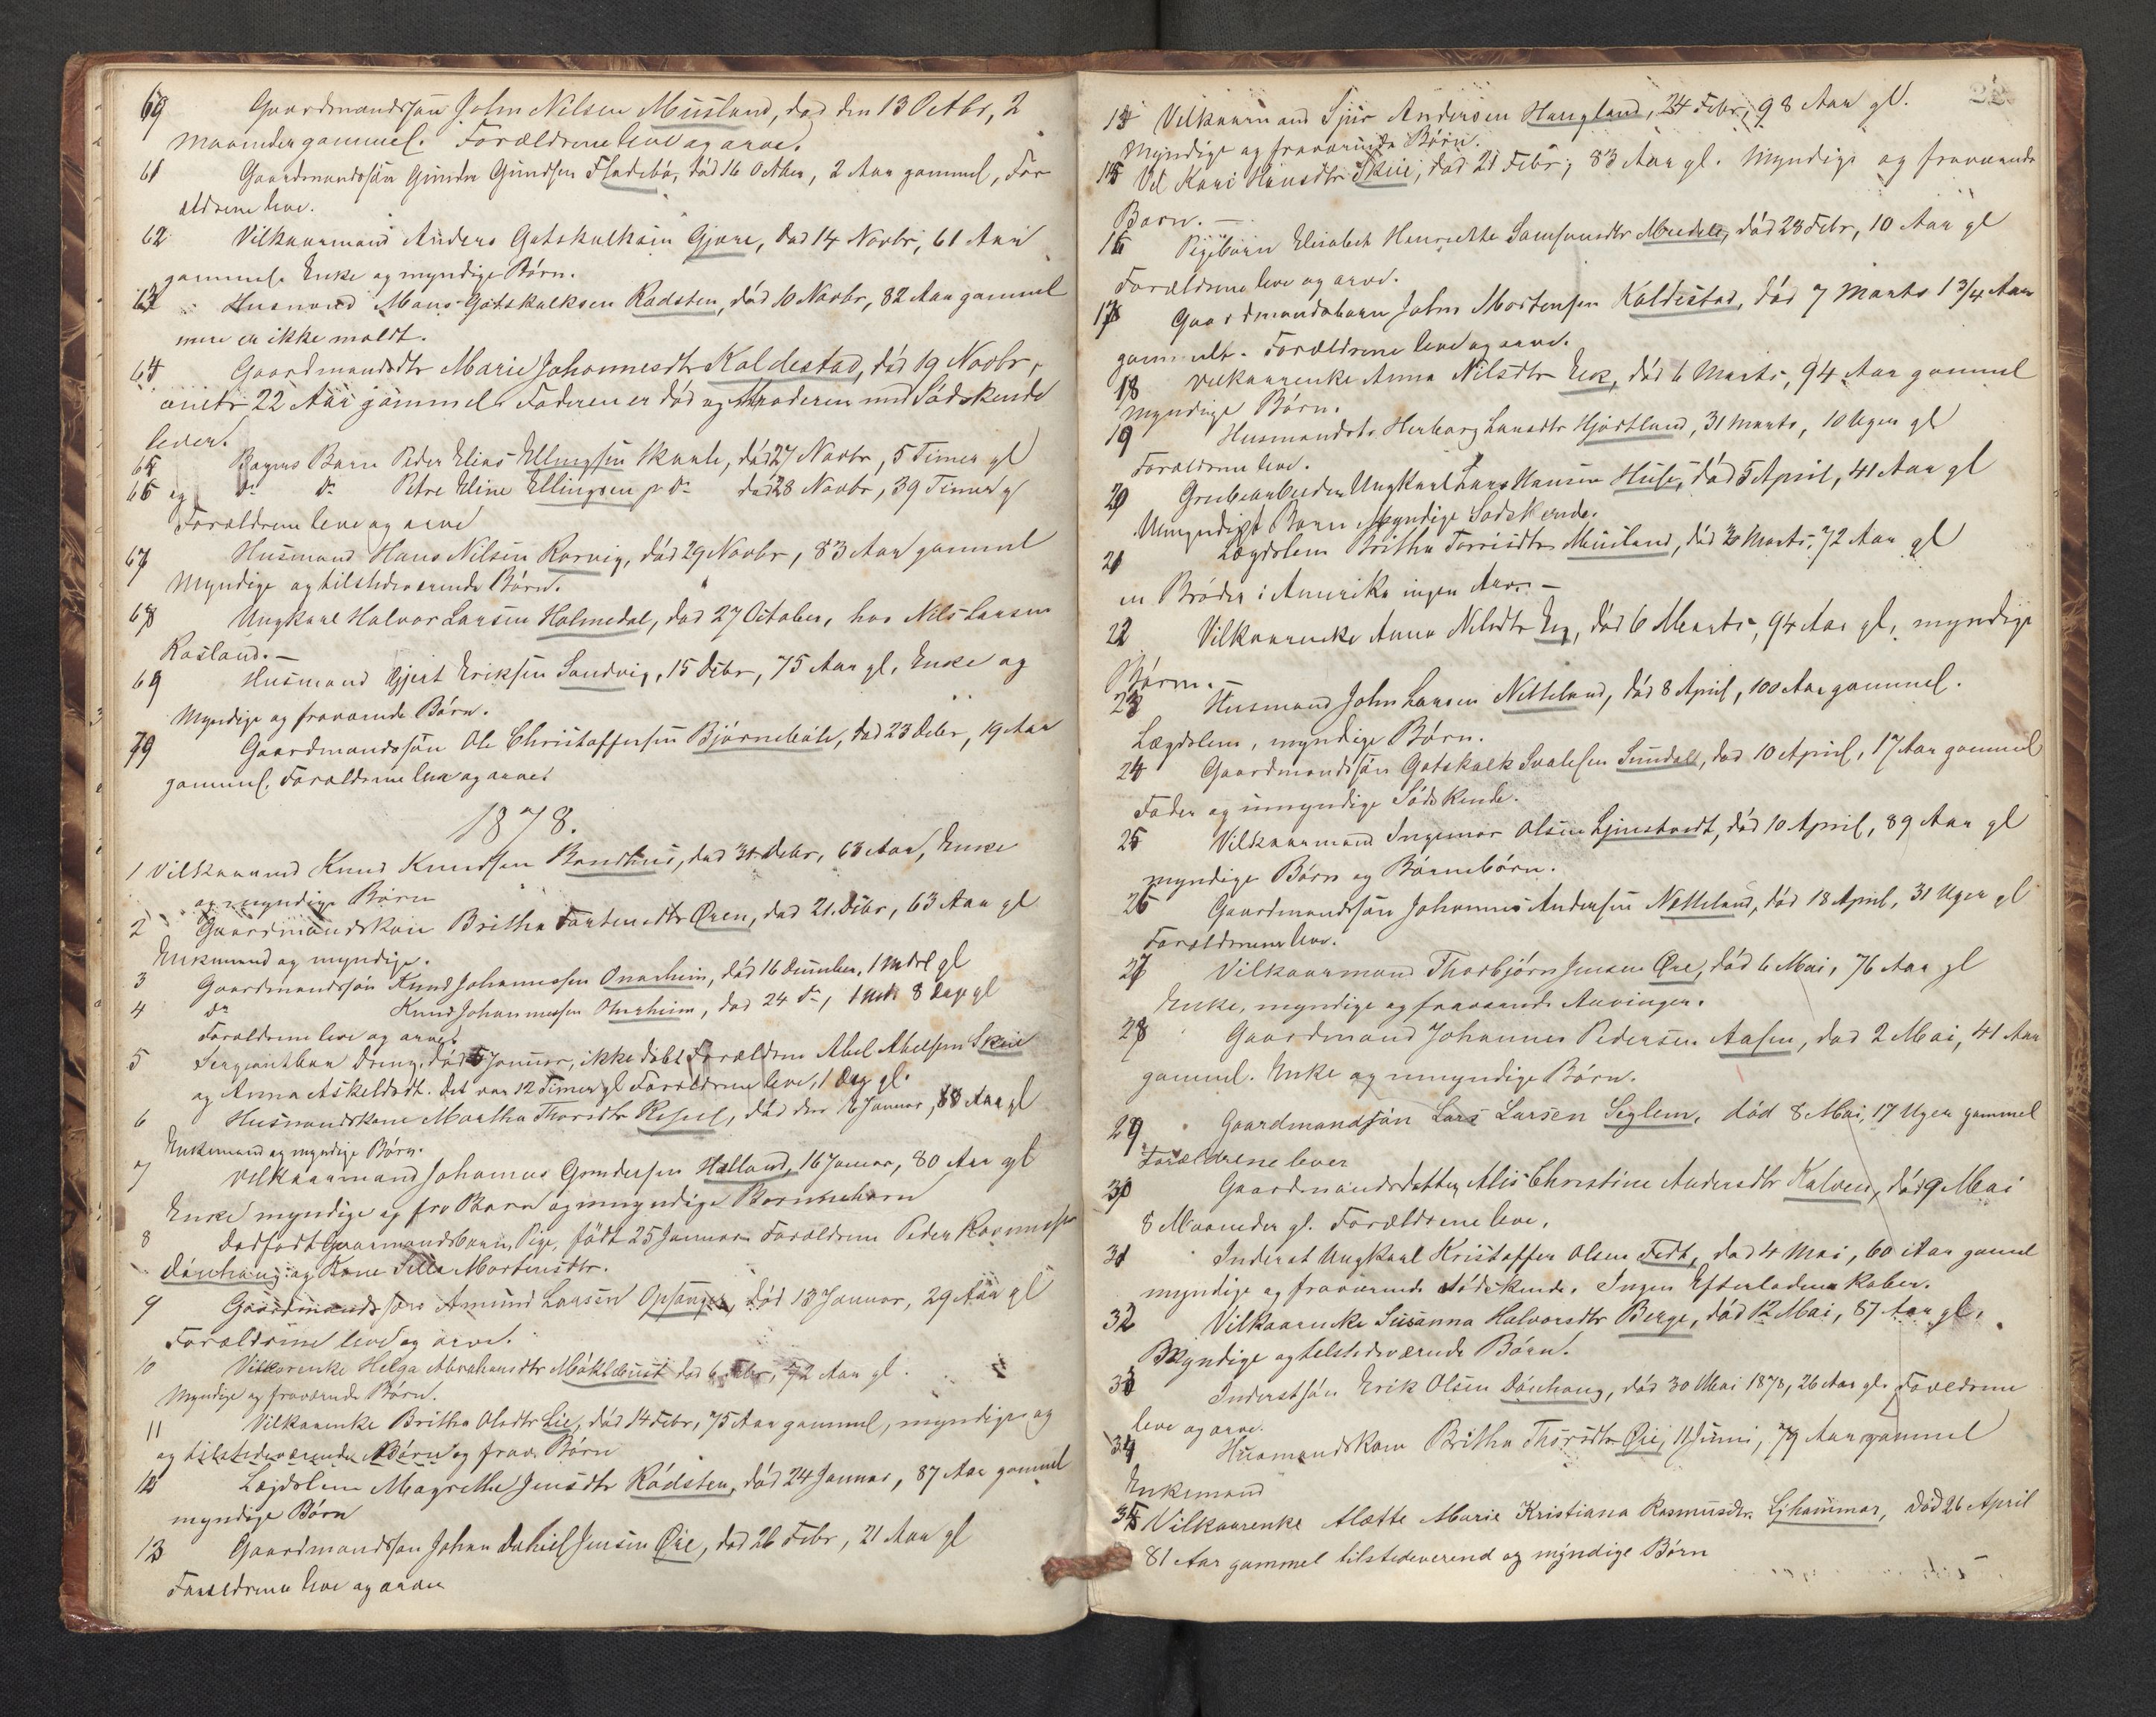 69 Gaardmandssøn John Nilsen Müsland, død den 13 Octbr, 2
Maaneder gammel. Forældrene leve og arve.
61 Gaardmandssøn Gunder Gundsen Fladebø, død 16 October, 2 Aar gammel, For
ældrene leve.
62 Vilkaarmand Anders Gotskalksen Gjøre, død 14 Novbr, 61 Aar
gammel. Enke og myndige Børn.
63 Husmand Mons Gotskalksen Rødsten, død 10 Novbr, 82 Aar gammel
mere er ikke meldt.
64 Gaardmandsdtr Marie Johannesdtr Koldestad, død 19 Novbr,
22 Aar gammel. Faderen er død og Moderen med Sødskende
lever.
65 Barn Peder Elias Ellingsen Skaale, død 27 Novbr, 5 Timer gl
66 og do do Petre Eline Ellingsen do død 28 Novbr, 39 Timer gl
Forældrene leve og arve
67 Husmand Hans Nilsen Rørvig, død 29 Novbr, 83 Aar gammel
Myndige og tilstedeværende Børn.
68 Ungkarl Halvor Larsen Holmedal, død 27 October, hos Nils Larsen
Røsland. –
69 Husmand Gjert Eriksen Sandvig, 15 Debr, 75 Aar gl. Enke og
Myndige og fraværende Børn.
79 Gaardmandssøn Ole Christoffersen Bjørnebøle, død 23 Debr, 19 Aar
gammel. Forældrene leve og arver
1878.
1 Vilkaarmd Knud Knudsen Bondhus, død 31 Debr, 63 Aar, Enke
og myndige Børn
2 Gaardmandskone Britha Tarteinsdtr Øren, død 21 Debr, 63 Aar gl
Enkemand og myndige.
3 Gaardmandssøn Knud Johannessen Onarheim, død 16 December, 1 Mdr gl
4 do Knud Johannessen Onarheim, død 24 do, 1 Mdr 8 Dage gl
Forældrene leve og arver
5 Sergeantbarn Dreng, død 5 Januar, ikke døbt Forældrene Abel Abelsen Skeie
og Anna Askeldsdt. Det var 12 Timer gl Forældrene leve, 1 Dag gl.
6 Husmandskone Martha Thorsdtr død den 6 Januar, 88 Aar gl
Enkemand og myndige Børn.
7 Vilkaarmand Johannes Gundersen Holland, 16 Januar, 80 Aar gl
Enke myndige og frav Børn og umyndige Børnebørn
8 Dødfødt Gaarmandsbarn, Pige, født 25 Januar Forældrene Peder Rasmussen
Dønhaug og Kone Sella Mortensdtr.
9 Gaardmandssøn Amund Larsen Opsanger, død 13 Januar, 29 Aar gl
Forældrene leve og arve.
10 Vilkorenke Helga Abrahamsdtr Møklebust død 6 Febr, 72 Aar gl.
Myndige og fraværende Børn.
11 Vilkaarenke Britha Olsdtr Lie, død 14 Febr, 75 Aar gammel, myndige og
og tilstedeværende Børn og frav. Børn
12 Lægdslem Magrethe Jensdtr Rødsten, død 24 Januar, 87 Aar gammel
myndige Børn
13 Gaardmandssøn Johan Daniel Jensen Øie, død 26 Febr, 21 Aar gl
Forældrene leve og arver
14 Vilkaarmand Sjur Andersen Haugland, 24 Febr, 98 Aar gl.
Myndige og fraværende Børn.
15 Vil Kari Hansdtr Skeie, død 21 Febr, 83 Aar gl. Myndige og fraværende
Børn. –
16 Pigebarn Elisabet Henriette Samsonsdtr død 28 Febr, 10 Aar gl
Forældrene leve og arve.
17 Gaardmandsbarn John Mortensen Koldestad, død 7 Marts 1 3/4 Aar
gammelt. Forældrene leve og arve.
18 Vilkaarenke Anna Nilsdtr Eik, død 6 Marts, 94 Aar gammel
Myndige Børn.
19 Husmandsdtr Herborg Larsdtr Hjortland, 31 Marts, 10 Uger gl
Forældrene leve.
20 Grubearbeider Ungkarl Lars Hansen Huse, død 5 April, 41 Aar gl
Umyndigt Barn Myndige Sødskende.
21 Lægdslem Britha Torrisdtr Müsland, død 30 Marts, 72 Aar gl
en Brøder i Amerika ingen Arv. –
22 Vilkaarenke Anna Nilsdtr Eig, død 6 Marts, 94 Aar gl, myndige
Børn. –
23 Husmand John Larsen Netteland, død 8 April, 100 Aar gammel.
Lægdslem, myndige Børn.
24 Gaardmandssøn Gotskalk Svalesen Sundal, død 10 April, 17 Aar gammel
Fader og umyndige Sødskende.
25 Vilkaarmand Ingemar Olsen Ljustvedt, død 10 April, 89 Aar gl
myndige Børn og Børnebørn.
26 Gaardmandssøn Johannes Andersen Netteland, død 18 April, 31 Uger gl
Forældrene leve.
27 Vilkaarmand Thorbjørn Jensen Øie, død 6 Mai, 76 Aar gl
Enke, myndige og fraværende Arvinger.
28 Gaardmand Johannes Pedersen Aasen, død 2 Mai, 41 Aar
gammel. Enke og umyndige Børn.
29 Gaardmandsøn Lars Larsen Seglem, død 8 Mai, 17 Uger gammel
Forældrene lever
30 Gaardmandsdatter Alis Christine Andersdtr Kalven, død 9 Mai
8 Maaneder gl. Forældrene leve.
31 Inderst Ungkarl Kristoffer Olsen Fedt, død 4 Mai, 60 Aar gammel
myndige og fraværende Sødskende. Ingen Efterladenskaber.
32 Vilkaarenke Susanna Halvorsdtr Berge, død 12 Mai, 87 Aar gl.
Myndige og tilstedeværende Børn.
33 Inderstsøn Erik Olsen Dønhaug, død 30 Mai 1878, 26 Aar gl. Foreldrene
leve og arve.
34 Husmandskone Britha Thorsdtr Øie, 11 Juni, 79 Aar gammel
Enkemand
35 Vilkaarenke Alætte Marie Kristiana Rasmusdtr. Ljhammar, død 26 April
81 Aar gammel tilstedeverend og myndige Børn